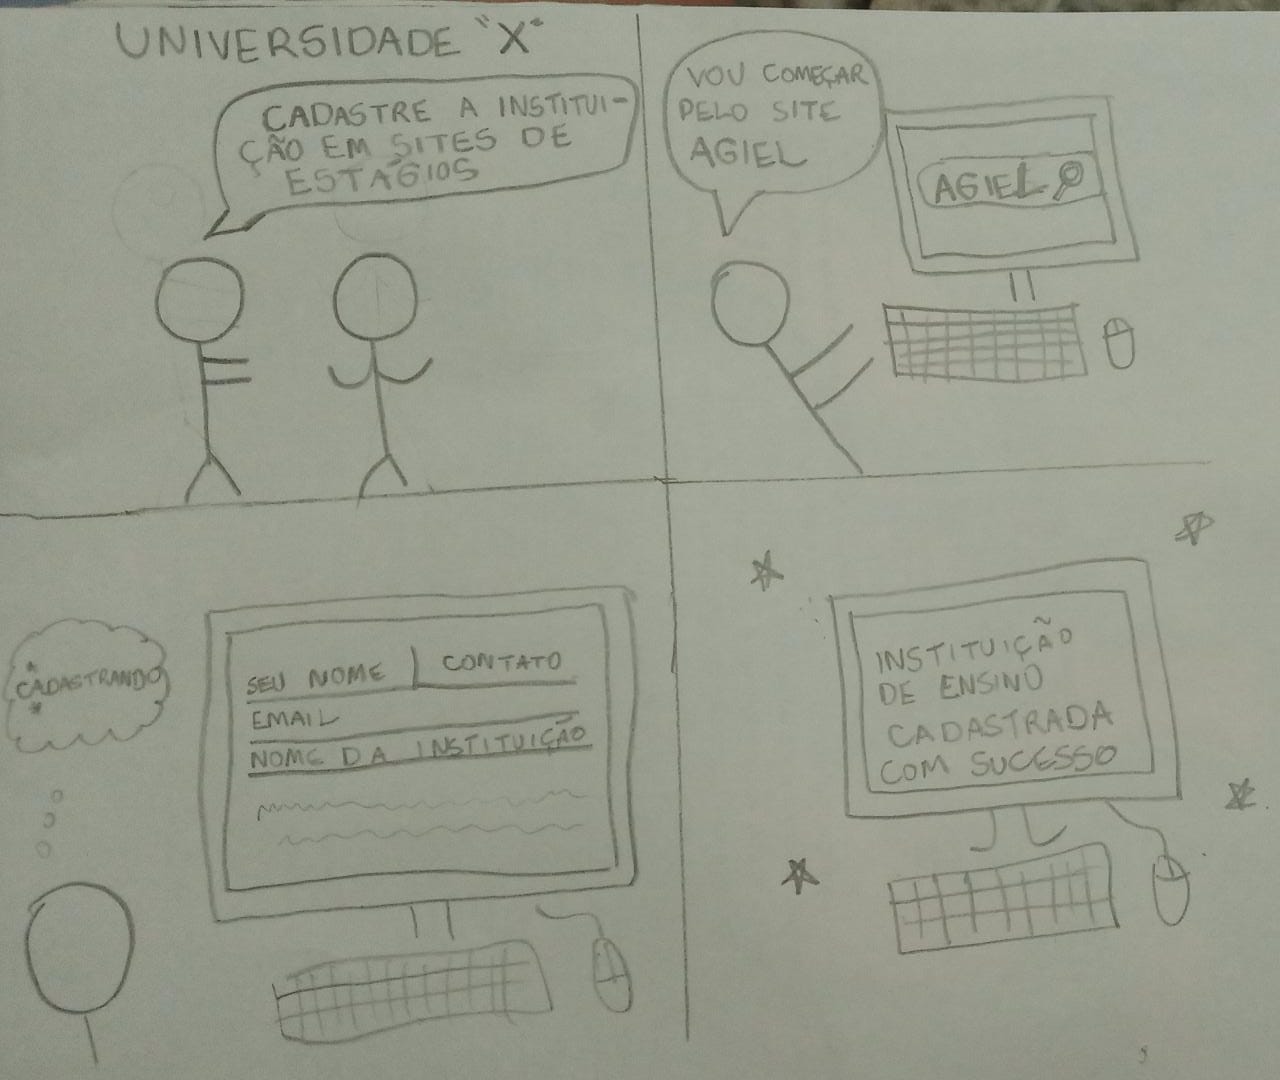 UNIVERSIDADE "X"
CADASTRE A INSTITUI-
ÇÃO EM SITES DE
ESTÁGIOS
VOU COMEÇAR
PELO SITE
AGIEL
AGIEL
*CADASTRANDO*
SEU NOME | CONTATO
EMAIL
NOME DA INSTITUIÇÃO
INSTITUIÇÃO
DE ENSINO
CADASTRADA
COM SUCESSO